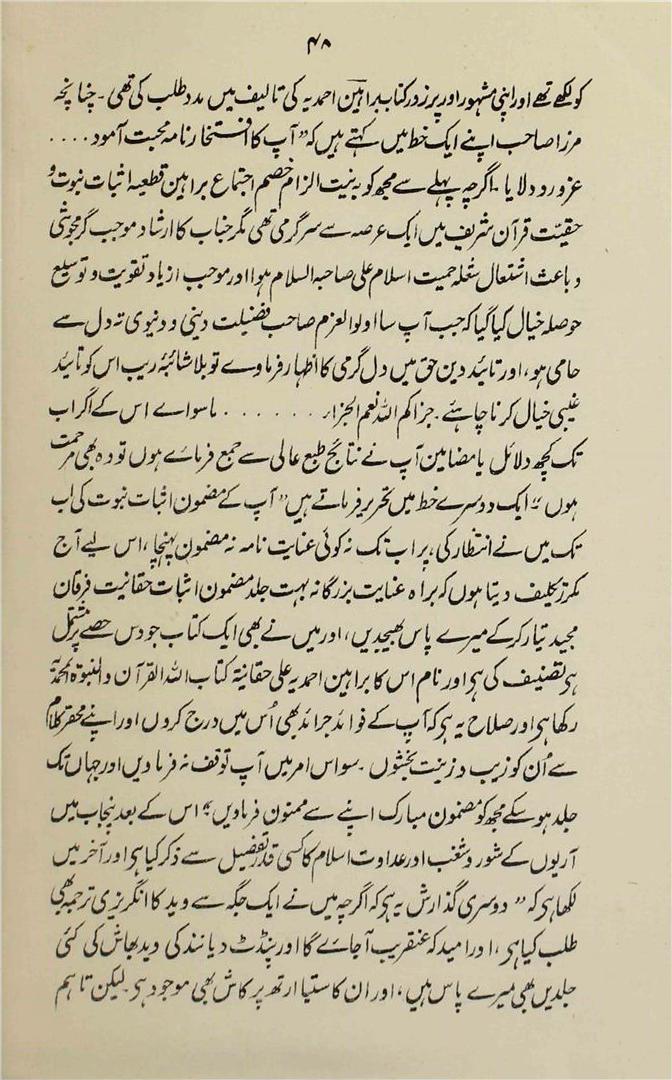 ۴۸
کو لکھے تھے اور اپنی مشہور اور پرزور کتاب براہین احمدیہ کی تالیف میں مدد طلب کی تھی۔ چنانچہ
مرزا صاحب اپنے ایک خط میں کہتے ہیں کہ "آپ کا افتخار نامہ محبت آمود....
عزورود لایا۔ اگرچہ پہلے سے مجھ کو بہ نیت الزام خصم اجتماع براہین قطعیہ اثبات نبوت و
حقیت قرآن شریف میں ایک عرصہ سے سرگرمی تھی مگر جناب کا ارشاد موجب گرمجوشی
و باعث اشتعال شعلہ حمیت اسلام علی صاحبہ السلام ہوا اور موجب ازیاد تقویت و توسیع
حوصلہ خیال کیا گیا کہ جب آپ سا اولوالعزم صاحب فضیلت دینی و دنیوی تہ دل سے
حامی ہو، اور تائید دین حق میں دل گرمی کا اظہار فرماوے تو بلا شائبۂ ریب اس کو تائید
غیبی خیال کرنا چاہئے۔ جزاکم اللہ نعم الجزاء........ ماسواے اس کے اگر اب
تک کچھ دلائل یا مضامین آپ نے نتائج طبع عالی سے جمع فرمائے ہوں تو وہ بھی مرحمت
ہوں" ایک دوسرے خط میں تحریر فرماتے ہیں "آپ کے مضمون اثبات نبوت کی اب
تک میں نے انتظار کی، پر اب تک نہ کوئی عنایت نامہ نہ مضمون پہنچا، اس لیے آج
مکرر تکلیف دیتا ہوں کہ براہ عنایت بزرگانہ بہت جلد مضمون اثبات حقانیت فرقان
مجید تیار کر کے میرے پاس بھیجدیں، اور میں نے بھی ایک کتاب جو دس حصے پر مشتمل
ہی تصنیف کی ہی اور نام اس کا براہین احمدیہ علی حقانیۃ کتاب اللہ القرآن والنبوۃ المحمدیہ
رکھا ہی اور صلاح یہ ہی کہ آپ کے فوائد جرائد بھی اُس میں درج کروں اور اپنے محقر کلام
سے اُن کو زیب و زینت بخشوں۔ سو اس امر میں آپ توقف نہ فرماویں اور جہاں تک
جلد ہو سکے مجھ کو مضمون مبارک اپنے سے ممنون فرماویں" اس کے بعد پنجاب میں
آریوں کے شور و شغب اور عداوت اسلام کا کسی قدر تفصیل سے ذکر کیا ہی اور آخر میں
لکھا ہی کہ "دوسری گذارش یہ ہی کہ اگرچہ میں نے ایک جگہ سے وید کا انگریزی ترجمہ بھی
طلب کیا ہی، اور امید کہ عنقریب آجائے گا اور پنڈت دیانند کی وید بھاش کی کئی
جلدیں بھی میرے پاس ہیں، اور ان کا ستیارتھ پرکاش بھی موجود ہی۔ لیکن تاہم